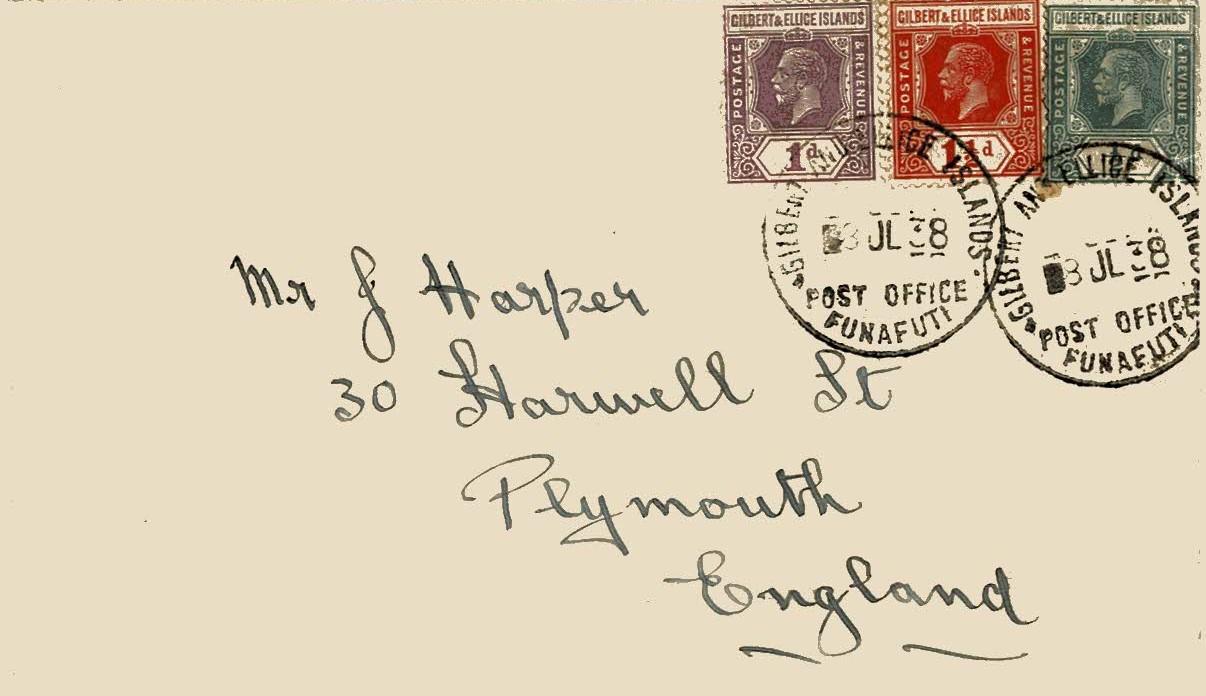 GILBERT & ELLICE ISLANDS
POSTAGE & REVENUE
1d
GILBERT & ELLICE ISLANDS
POSTAGE & REVENUE
1½d
GILBERT & ELLICE ISLANDS
POSTAGE & REVENUE
GILBERT AND ELLICE ISLANDS
8 JL 38
POST OFFICE
FUNAFUTI
GILBERT AND ELLICE ISLANDS
8 JL 38
POST OFFICE
FUNAFUTI
Mr J Harper
30 Harwell St
Plymouth
England